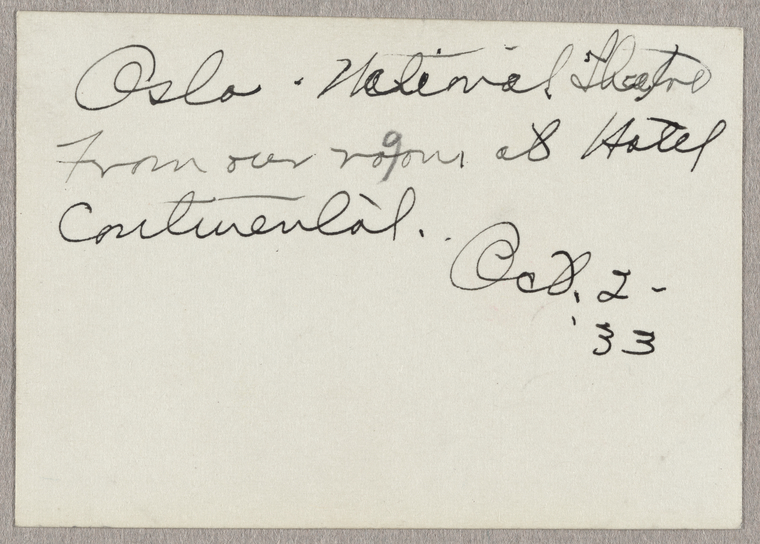 Oslo - National Theatre
From our room at Hotel
Continental.
Oct. 2 -
'33
9